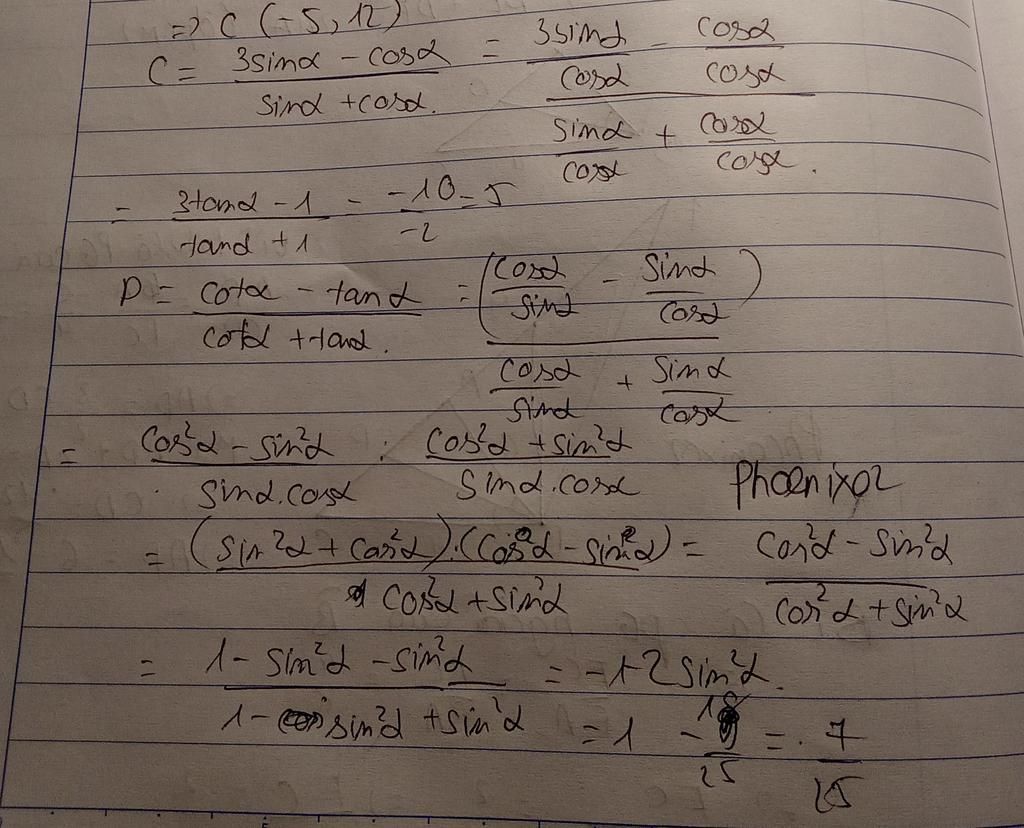 => C (-5, 12)
C = (3sinα - cosα)/(sinα + cosα.) = (3sinα/cosα - cosα/cosα)/(sinα/cosα + cosα/cosα.)
= (3tanα - 1)/(tanα + 1) = -10/-2 = 5
D = (cotα - tanα)/(cotα + tanα.) = (cosα/sinα - sinα/cosα)/(cosα/sinα + sinα/cosα)
= (cos²α - sin²α)/(sinα.cosα) : (cos²α + sin²α)/(sinα.cosα)
Phoenix02
= (sin²α + cos²α).(cos²α - sin²α)/(cos²α + sin²α) = (cos²α - sin²α)/(cos²α + sin²α)
= (1 - sin²α - sin²α)/(1 - sin²α + sin²α) = -1-2sin²α.
= 1 - 18/25 = 7/25